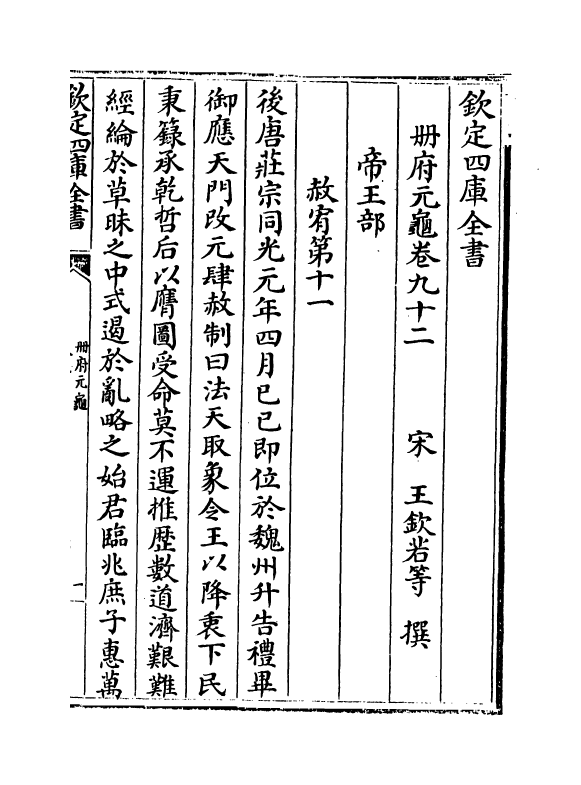 欽定四庫全書
冊府元龜卷九十二　宋　王欽若等　撰
帝王部
赦宥第十一
後唐莊宗同光元年四月己巳即位於魏州升告禮畢
御應天門改元肆赦制曰法天取象令王以降衷下民
秉籙承乾哲后以膺圖受命莫不運推歴數道濟艱難
經綸於草昧之中式遏於亂略之始君臨兆庶子惠萬
欽定四庫全書
冊府元龜
一